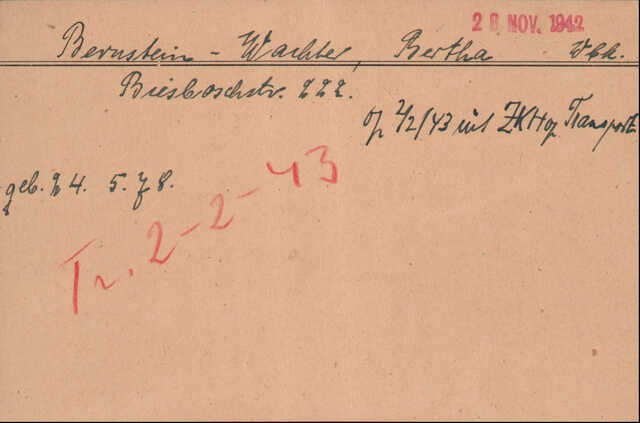 28 NOV. 1942
Bernstein - Wachter, Bertha
Biesboschstr. 222.
op 2/2/43 uit ZKH op Transport
geb. 24. 5. 78.
Tr. 2-2-43